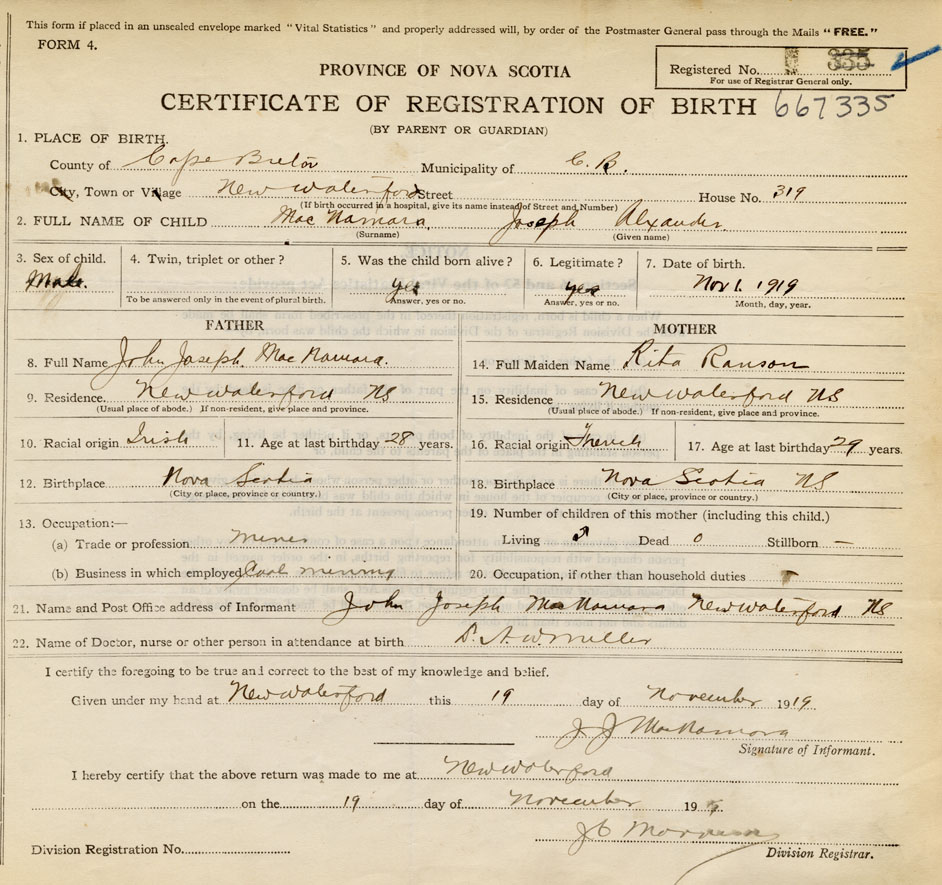 This form if placed in an unsealed envelope marked "Vital Statistics" and properly addressed will, by order of the Postmaster General pass through the Mails "FREE."
FORM 4.
Registered No. 335
For use of Registrar General only.
PROVINCE OF NOVA SCOTIA
CERTIFICATE OF REGISTRATION OF BIRTH 667335
(BY PARENT OR GUARDIAN)
1. PLACE OF BIRTH.
County of Cape Breton Municipality of C. B.
City, Town or Village New Waterford Street House No. 319
(If birth occurred in a hospital, give its name instead of Street and Number)
2. FULL NAME OF CHILD Mac Namara, Joseph Alexander
(Surname) (Given name)
3. Sex of child. 4. Twin, triplet or other? 5. Was the child born alive? 6. Legitimate? 7. Date of birth.
Male yes yes Nov 1. 1919
To be answered only in the event of plural birth. Answer, yes or no. Answer, yes or no. Month, day, year.
FATHER MOTHER
8. Full Name John Joseph Mac Namara. 14. Full Maiden Name Rita Ranson
9. Residence. New Waterford NS 15. Residence New Waterford NS
(Usual place of abode.) If non-resident, give place and province. (Usual place of abode.) If non-resident, give place and province.
10. Racial origin Irish 11. Age at last birthday 28 years. 16. Racial origin French 17. Age at last birthday 29 years.
12. Birthplace Nova Scotia 18. Birthplace Nova Scotia NS
(City or place, province or country.) (City or place, province or country.)
13. Occupation:— 19. Number of children of this mother (including this child.)
(a) Trade or profession Miner Living Dead 0 Stillborn —
(b) Business in which employed Coal mining 20. Occupation, if other than household duties
21. Name and Post Office address of Informant John Joseph MacNamara New Waterford NS
22. Name of Doctor, nurse or other person in attendance at birth A. W. Miller
I certify the foregoing to be true and correct to the best of my knowledge and belief.
Given under my hand at New Waterford this 19 day of November 1919.
J J MacNamara
Signature of Informant.
I hereby certify that the above return was made to me at New Waterford
on the 19 day of November 19
J C
Division Registration No. Division Registrar.